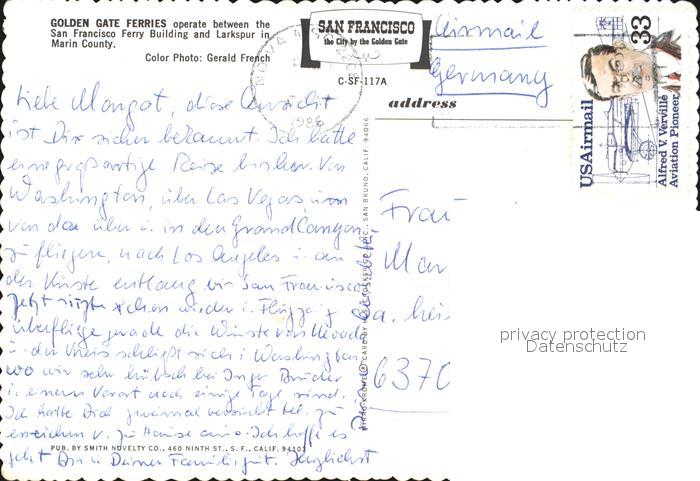 GOLDEN GATE FERRIES operate between the
San Francisco Ferry Building and Larkspur in
Marin County.
Color Photo: Gerald French
SAN FRANCISCO
the City by the Golden Gate
C-SF-117A
1986
Airmail
Germany
address
USAirmail
33
Alfred V. Verville
Aviation Pioneer
Liebe Margot, diese Ansicht
ist Dir sicher bekannt. Ich hatte
eine großartige Reise bisher. Von
Washington, über Las Vegas um
von da über u. in den Grand Canyon
zu fliegen, nach Los Angeles u. an
der Küste entlang bis San Francisco
Jetzt sitze schon wieder i. Flugzeug
überfliege gerade die Wüste von Nevada
u. der Kreis schließt sich i. Washington
wo wir sehr hübsch bei
i. einem Vorort noch einige Tage sind.
Ich hatte Dich zweimal versucht tel. zu
erreichen v. zu Hause aus. Ich hoffe es
geht Dir u. Deiner Familie gut. Herzlichst
Frau
Mar
6370
SAN BRUNO, CALIF. 94066
PUB. BY SMITH NOVELTY CO., 460 NINTH ST., S. F., CALIF. 94103
privacy protection
Datenschutz